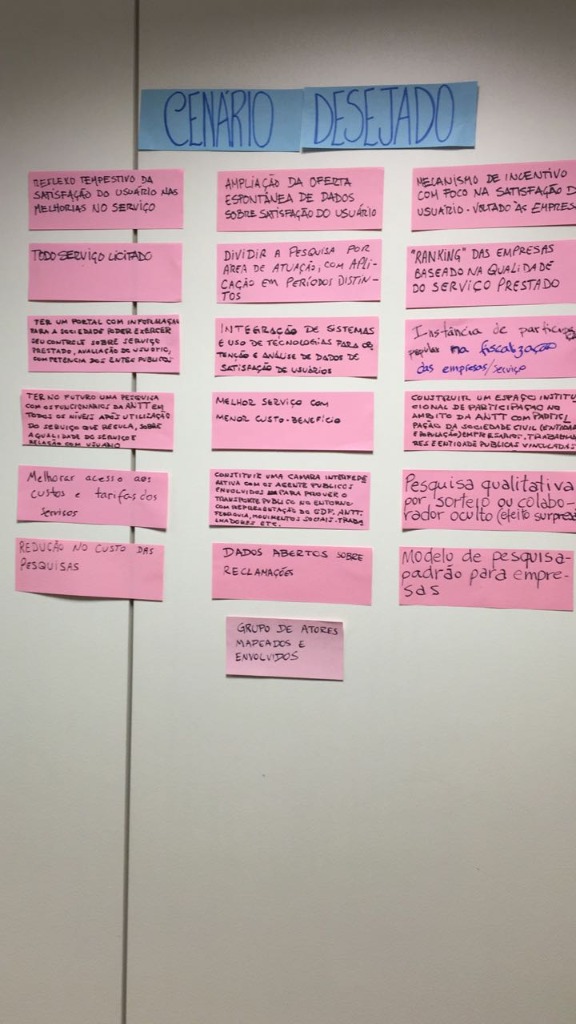 CENÁRIO DESEJADO
REFLEXO TEMPESTIVO DA
SATISFAÇÃO DO USUÁRIO NAS
MELHORIAS NO SERVIÇO
AMPLIAÇÃO DA OFERTA
ESPONTÂNEA DE DADOS
SOBRE SATISFAÇÃO DO USUÁRIO
MECANISMO DE INCENTIVO
COM FOCO NA SATISFAÇÃO D
USUÁRIO - VOLTADO ÀS EMPRES
TODO SERVIÇO LICITADO
DIVIDIR A PESQUISA POR
ÁREA DE ATUAÇÃO, COM APLI-
CAÇÃO EM PERÍODOS DISTIN-
TOS
"RANKING" DAS EMPRESAS
BASEADO NA QUALIDADE
DO SERVIÇO PRESTADO
TER UM PORTAL COM INFORMAÇÃO
PARA A SOCIEDADE PODER EXERCER
SEU CONTROLE SOBRE SERVIÇO
PRESTADO, AVALIAÇÃO DE USUÁRIO,
COMPETENCIA DOS ENTES PÚBLICOS
INTEGRAÇÃO DE SISTEMAS
E USO DE TECNOLOGIAS PARA OB
TENÇÃO E ANÁLISE DE DADOS DE
SATISFAÇÃO DE USUÁRIOS
Instância de particip
popular na fiscalização
das empresas/serviço
TER NO FUTURO UMA PESQUISA
COM OS FUNCIONÁRIOS DA ANTT EM
TODOS OS NÍVEIS APÓS UTILIZAÇÃO
DO SERVIÇO QUE REGULA, SOBRE
A QUALIDADE DO SERVIÇO E
RELAÇÃO COM USUÁRIO
MELHOR SERVIÇO COM
MENOR CUSTO-BENEFÍCIO
CONSTRUIR UM ESPAÇO INSTITU
CIONAL DE PARTICIPAÇÃO NO
ÂMBITO DA ANTT COM PARTICI
PAÇÃO DA SOCIEDADE CIVIL (ENTIDAD
E POPULAÇÃO) EMPRESÁRIOS, TRABALHA
RES E ENTIDADE PUBLICAS VINCULADAS
Melhorar acesso aos
custos e tarifas dos
serviços
CONSTITUIR UMA CAMARA INTERFEDE
RATIVA COM OS AGENTE PUBLICOS
ENVOLVIDOS PARA PROVER O
TRANSPORTE PUBLICO NO ENTORNO
COM REPRESENTAÇÃO DO GDF, ANTT,
FERROVIA, MOVIMENTOS SOCIAIS, TRABA
LHADORES ETC.
Pesquisa qualitativa
por sorteio ou colabo-
rador oculto (efeito surpresa
REDUÇÃO NO CUSTO DAS
PESQUISAS
DADOS ABERTOS SOBRE
RECLAMAÇÕES
Modelo de pesquisa-
padrão para empre-
sas
GRUPO DE ATORES
MAPEADOS E
ENVOLVIDOS